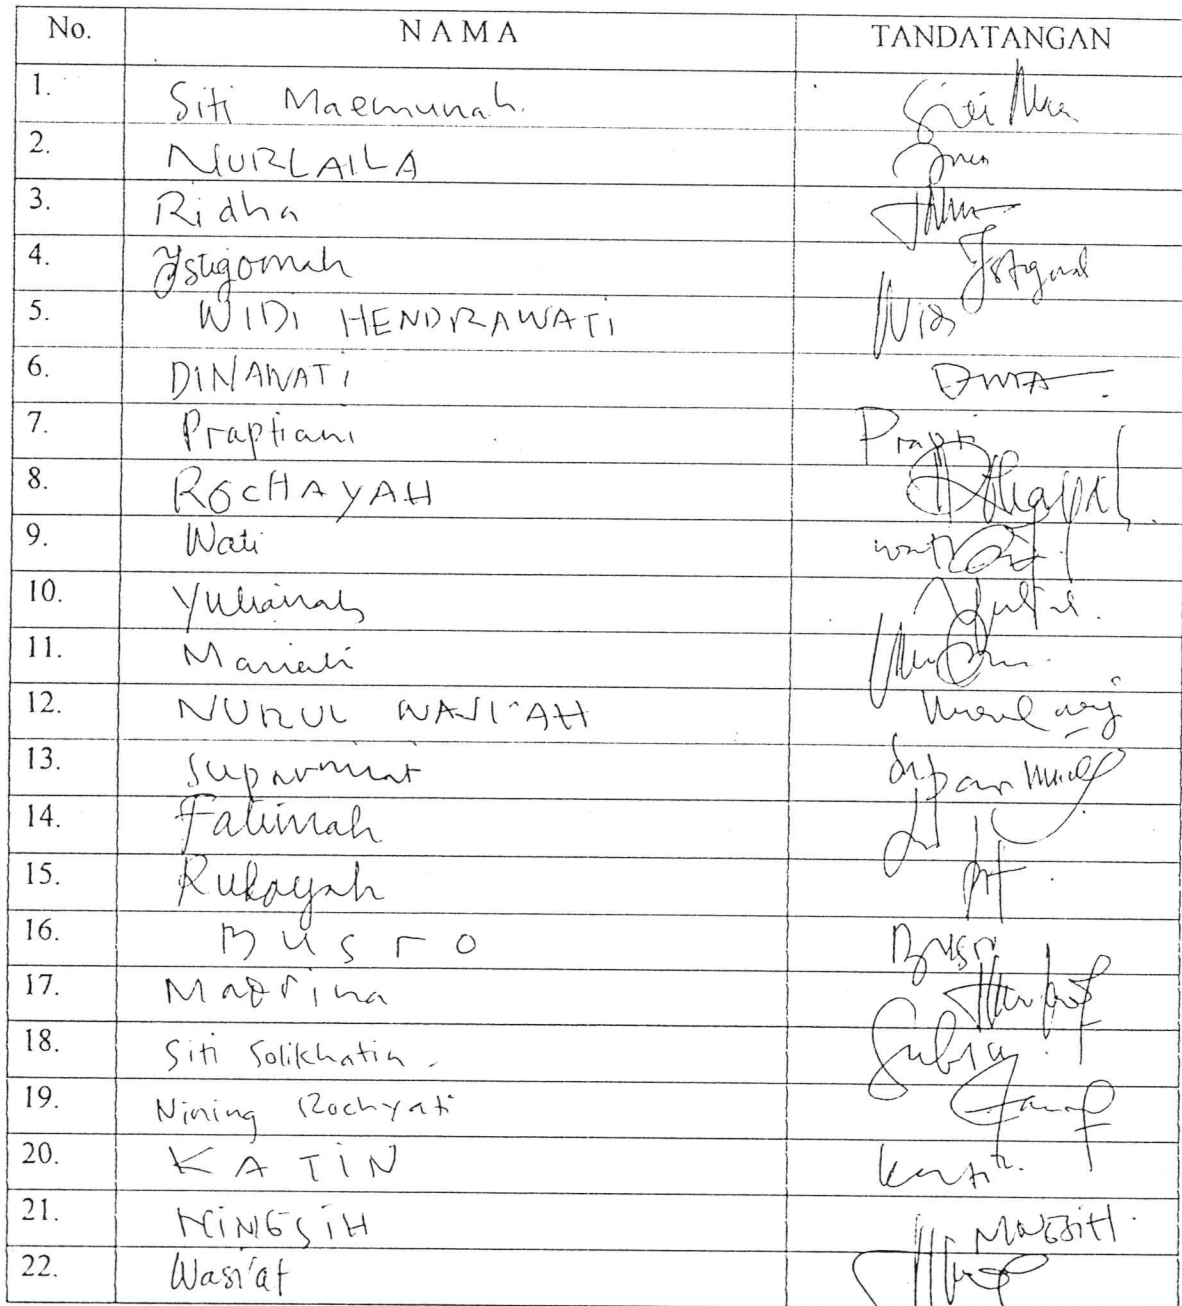 No. NAMA TANDATANGAN
1. Siti Maemunah. Siti Mae
2. NURLAILA
3. Ridha
4. Istigomah Istigomah
5. WIDI HENDRAWATI Widi
6. DINAWATI
7. Praptiani Prapti
8. ROCHAYAH
9. Wati wati
10. Yulianah
11. Mariati
12. NURUL WASI'AH
13. Suparmiat
14. Fatimah
15. Rukayah
16. Busro Busr
17. Madrina
18. Siti Solikhatin.
19. Nining Rochyati
20. KATIN Katin.
21. NINGSIH NINGSIH.
22. Wasi'at